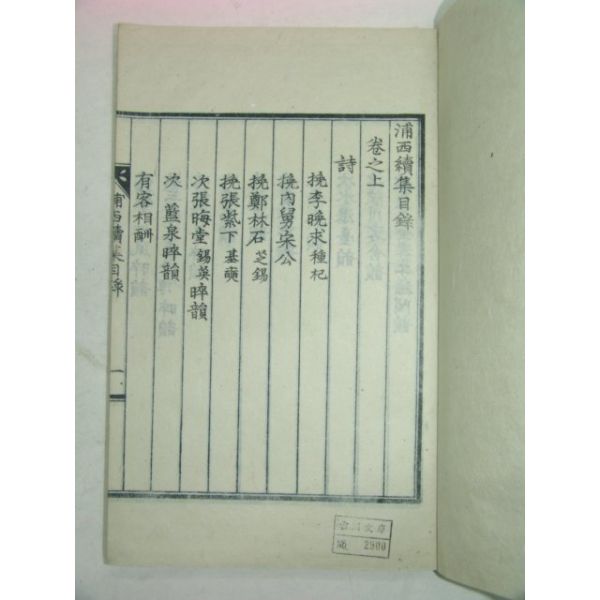 浦西續集目錄
卷之上
詩
挽李晚求種杞
挽內舅宋公
挽鄭林石芝錫
挽張紫下基奭
次張晦堂錫英晬韻
次藍泉晬韻
有客相酬
浦西續集目錄
一
古
文庫
№ 2900